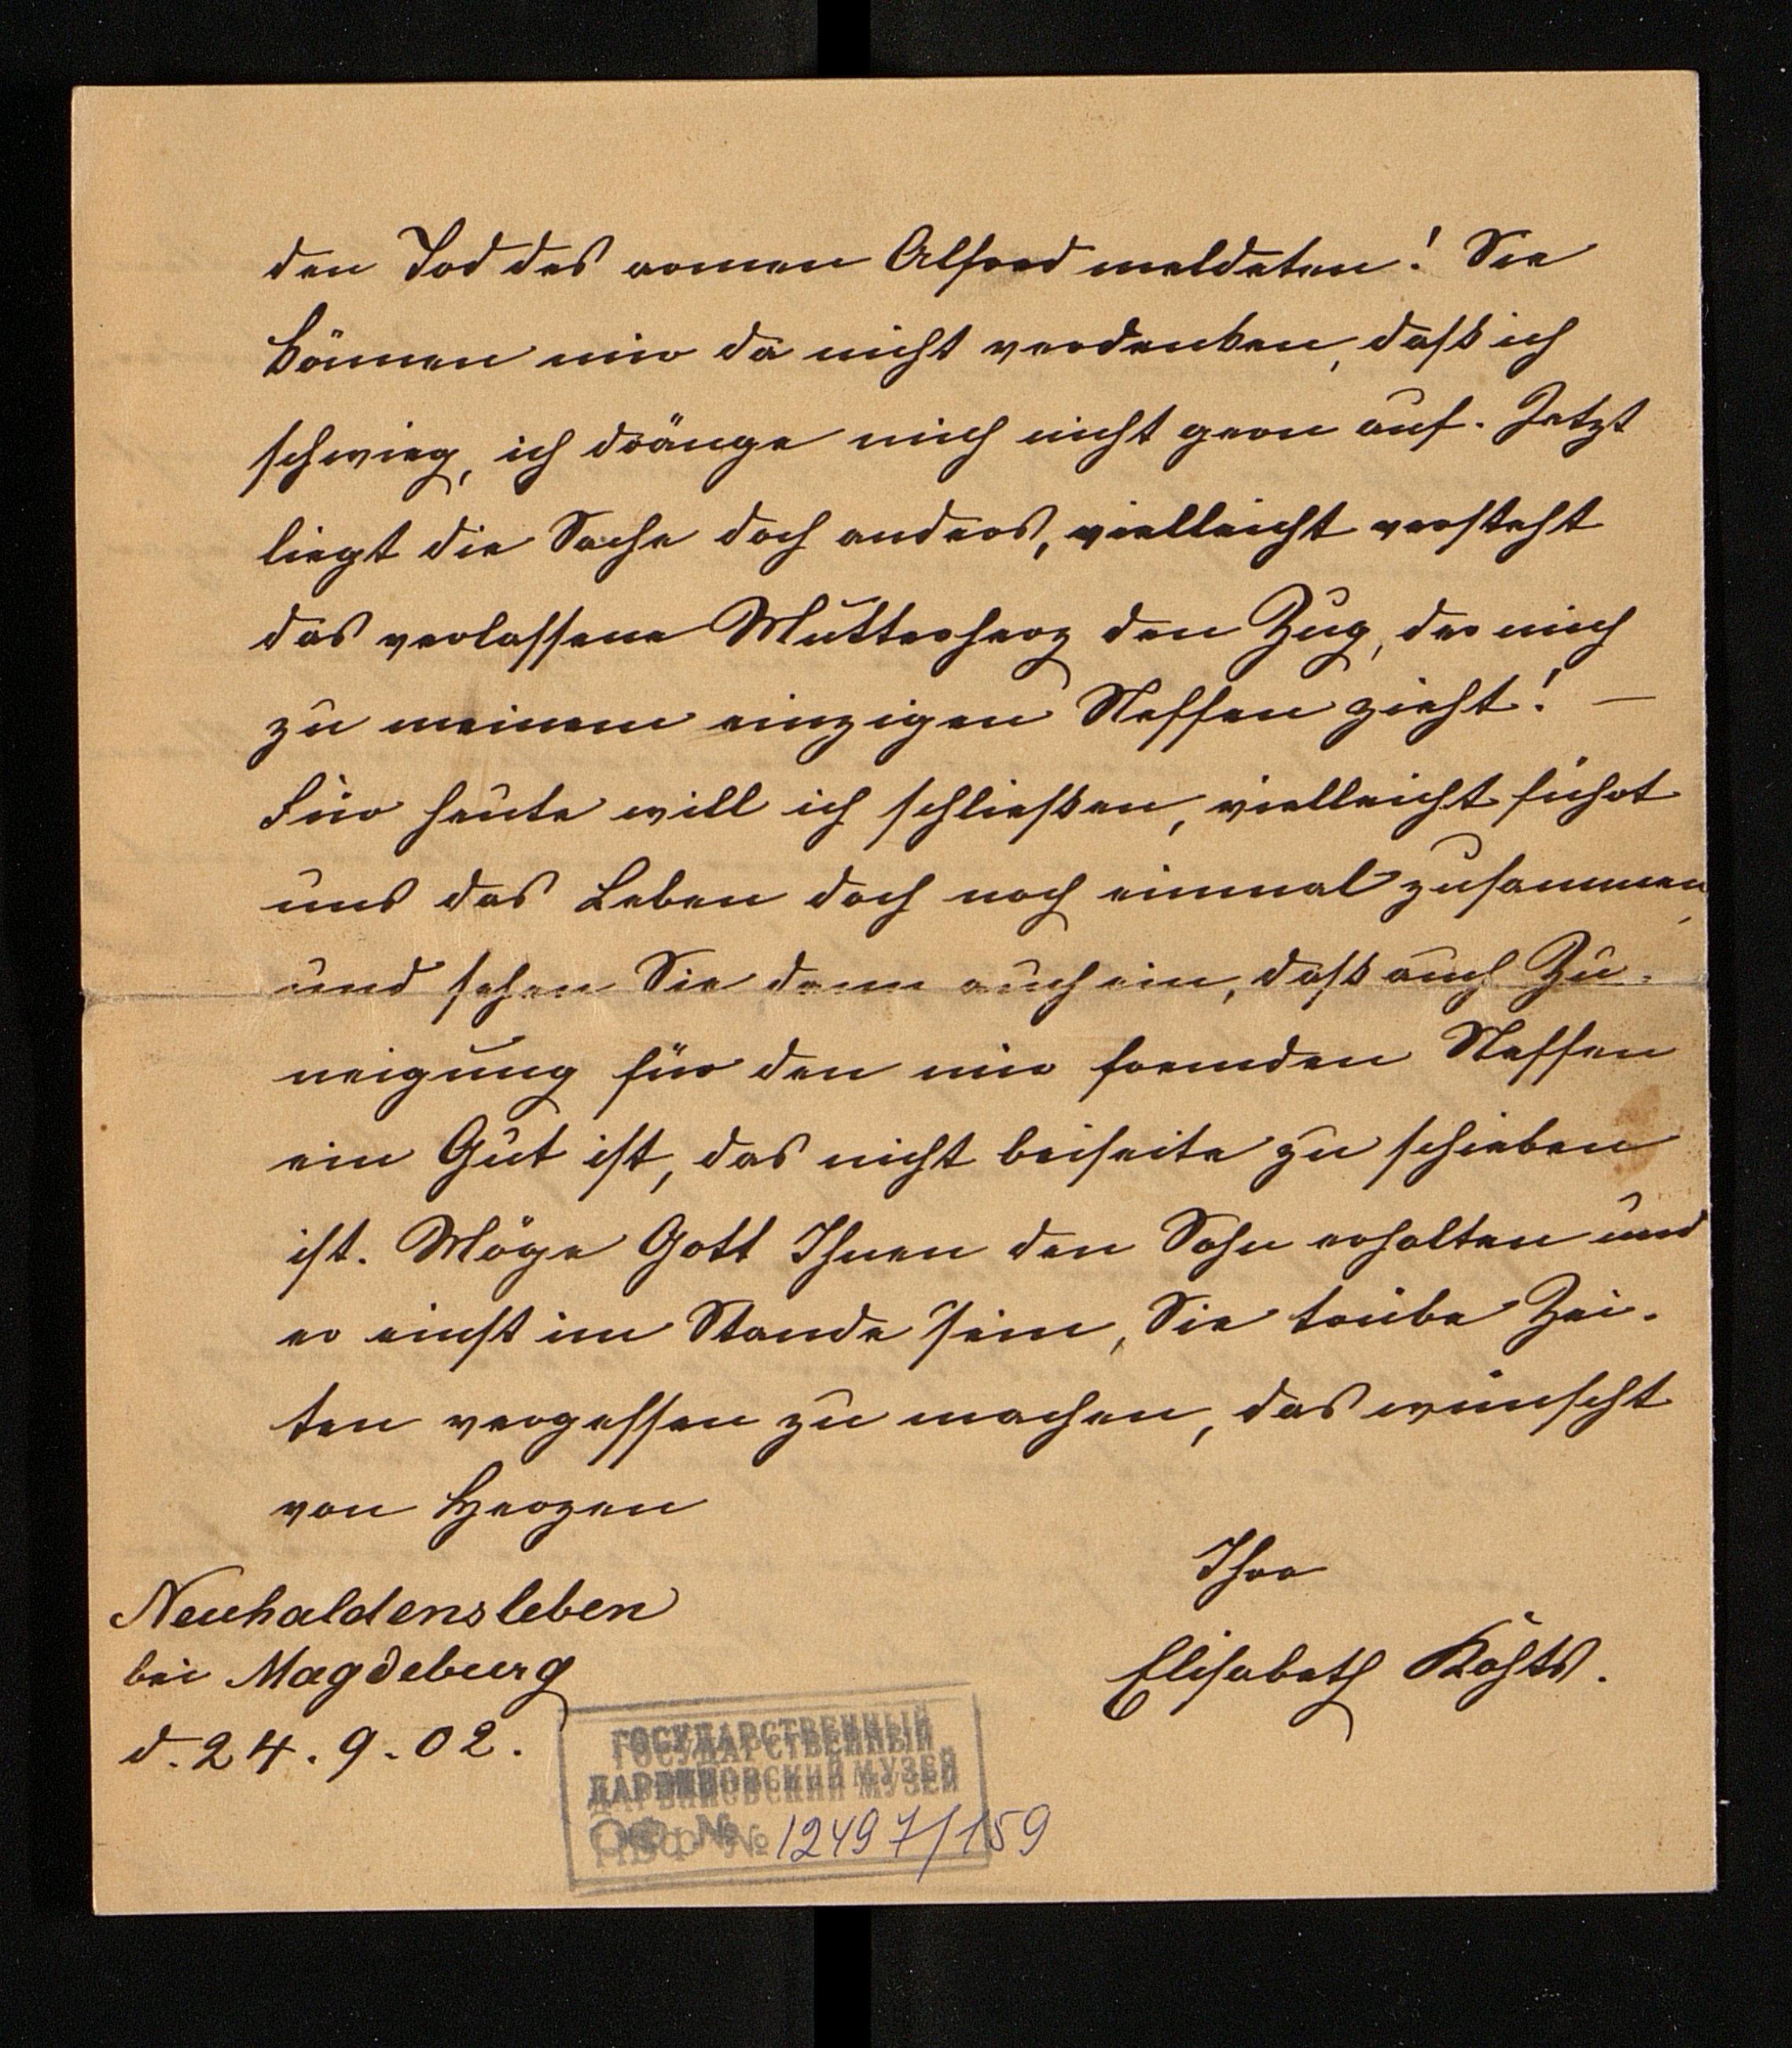 den Tod des armen Alfred meldeten! Sie
können mir da nicht verdenken, daß ich
schwieg, ich dränge mich nicht gern auf. Jetzt
liegt die Sache doch anders, vielleicht versteht
das verlassene Mutterherz den Zug, der mich
zu meinem einzigen Neffen zieht! —
Für heute will ich schließen, vielleicht führt
uns das Leben doch noch einmal zusammen,
und sehen Sie dann auch ein, daß auch Zu-
neigung für den mir fremden Neffen
ein Gut ist, das nicht beiseite zu schieben
ist. Möge Gott Ihnen den Sohn erhalten und
er einst im Stande sein, Sie trübe Zei-
ten vergessen zu machen, das wünscht
von Herzen
Ihre
Elisabeth Kohts.
Neuhaldensleben
bei Magdeburg
d. 24. 9. 02.
ГОСУДАРСТВЕННЫЙ
ДАРВИНОВСКИЙ МУЗЕЙ
ОФ № 12497/159